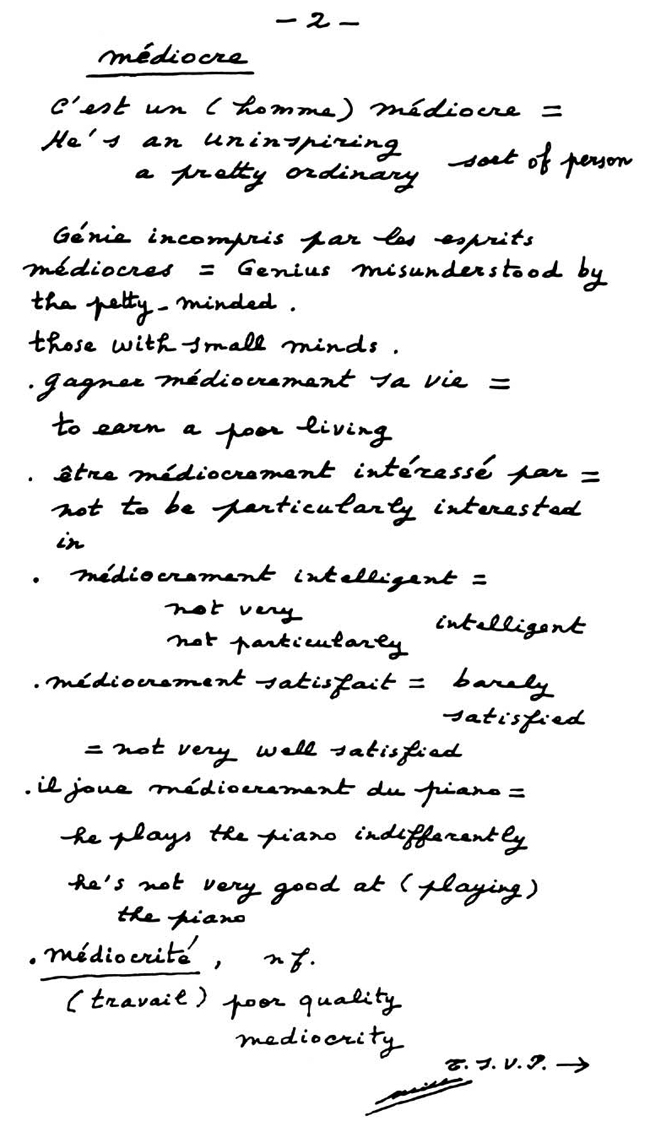 - 2 -
médiocre
C'est un (homme) médiocre =
He's an uninspiring
a pretty ordinary sort of person
Génie incompris par les esprits
médiocres = Genius misunderstood by
the petty-minded.
those with small minds.
. gagner médiocrement sa vie =
to earn a poor living
. être médiocrement intéressé par =
not to be particularly interested
in
. médiocrement intelligent =
not very
not particularly intelligent
. médiocrement satisfait = barely
satisfied
= not very well satisfied
. il joue médiocrement du piano =
he plays the piano indifferently
he's not very good at (playing)
the piano
. médiocrité, nf.
(travail) poor quality
mediocrity
T.S.V.P. →